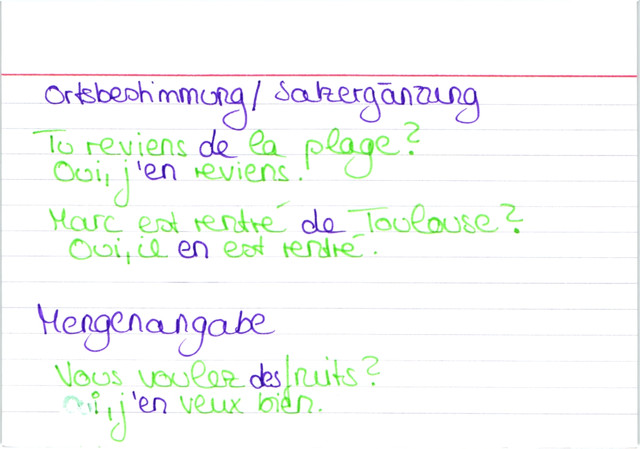 Ortsbestimmung / Satzergänzung
Tu reviens de la plage?
Oui, j'en reviens.
Marc est rentré de Toulouse?
Oui, il en est rentré.
Mengenangabe
Vous voulez des fruits?
Oui, j'en veux bien.